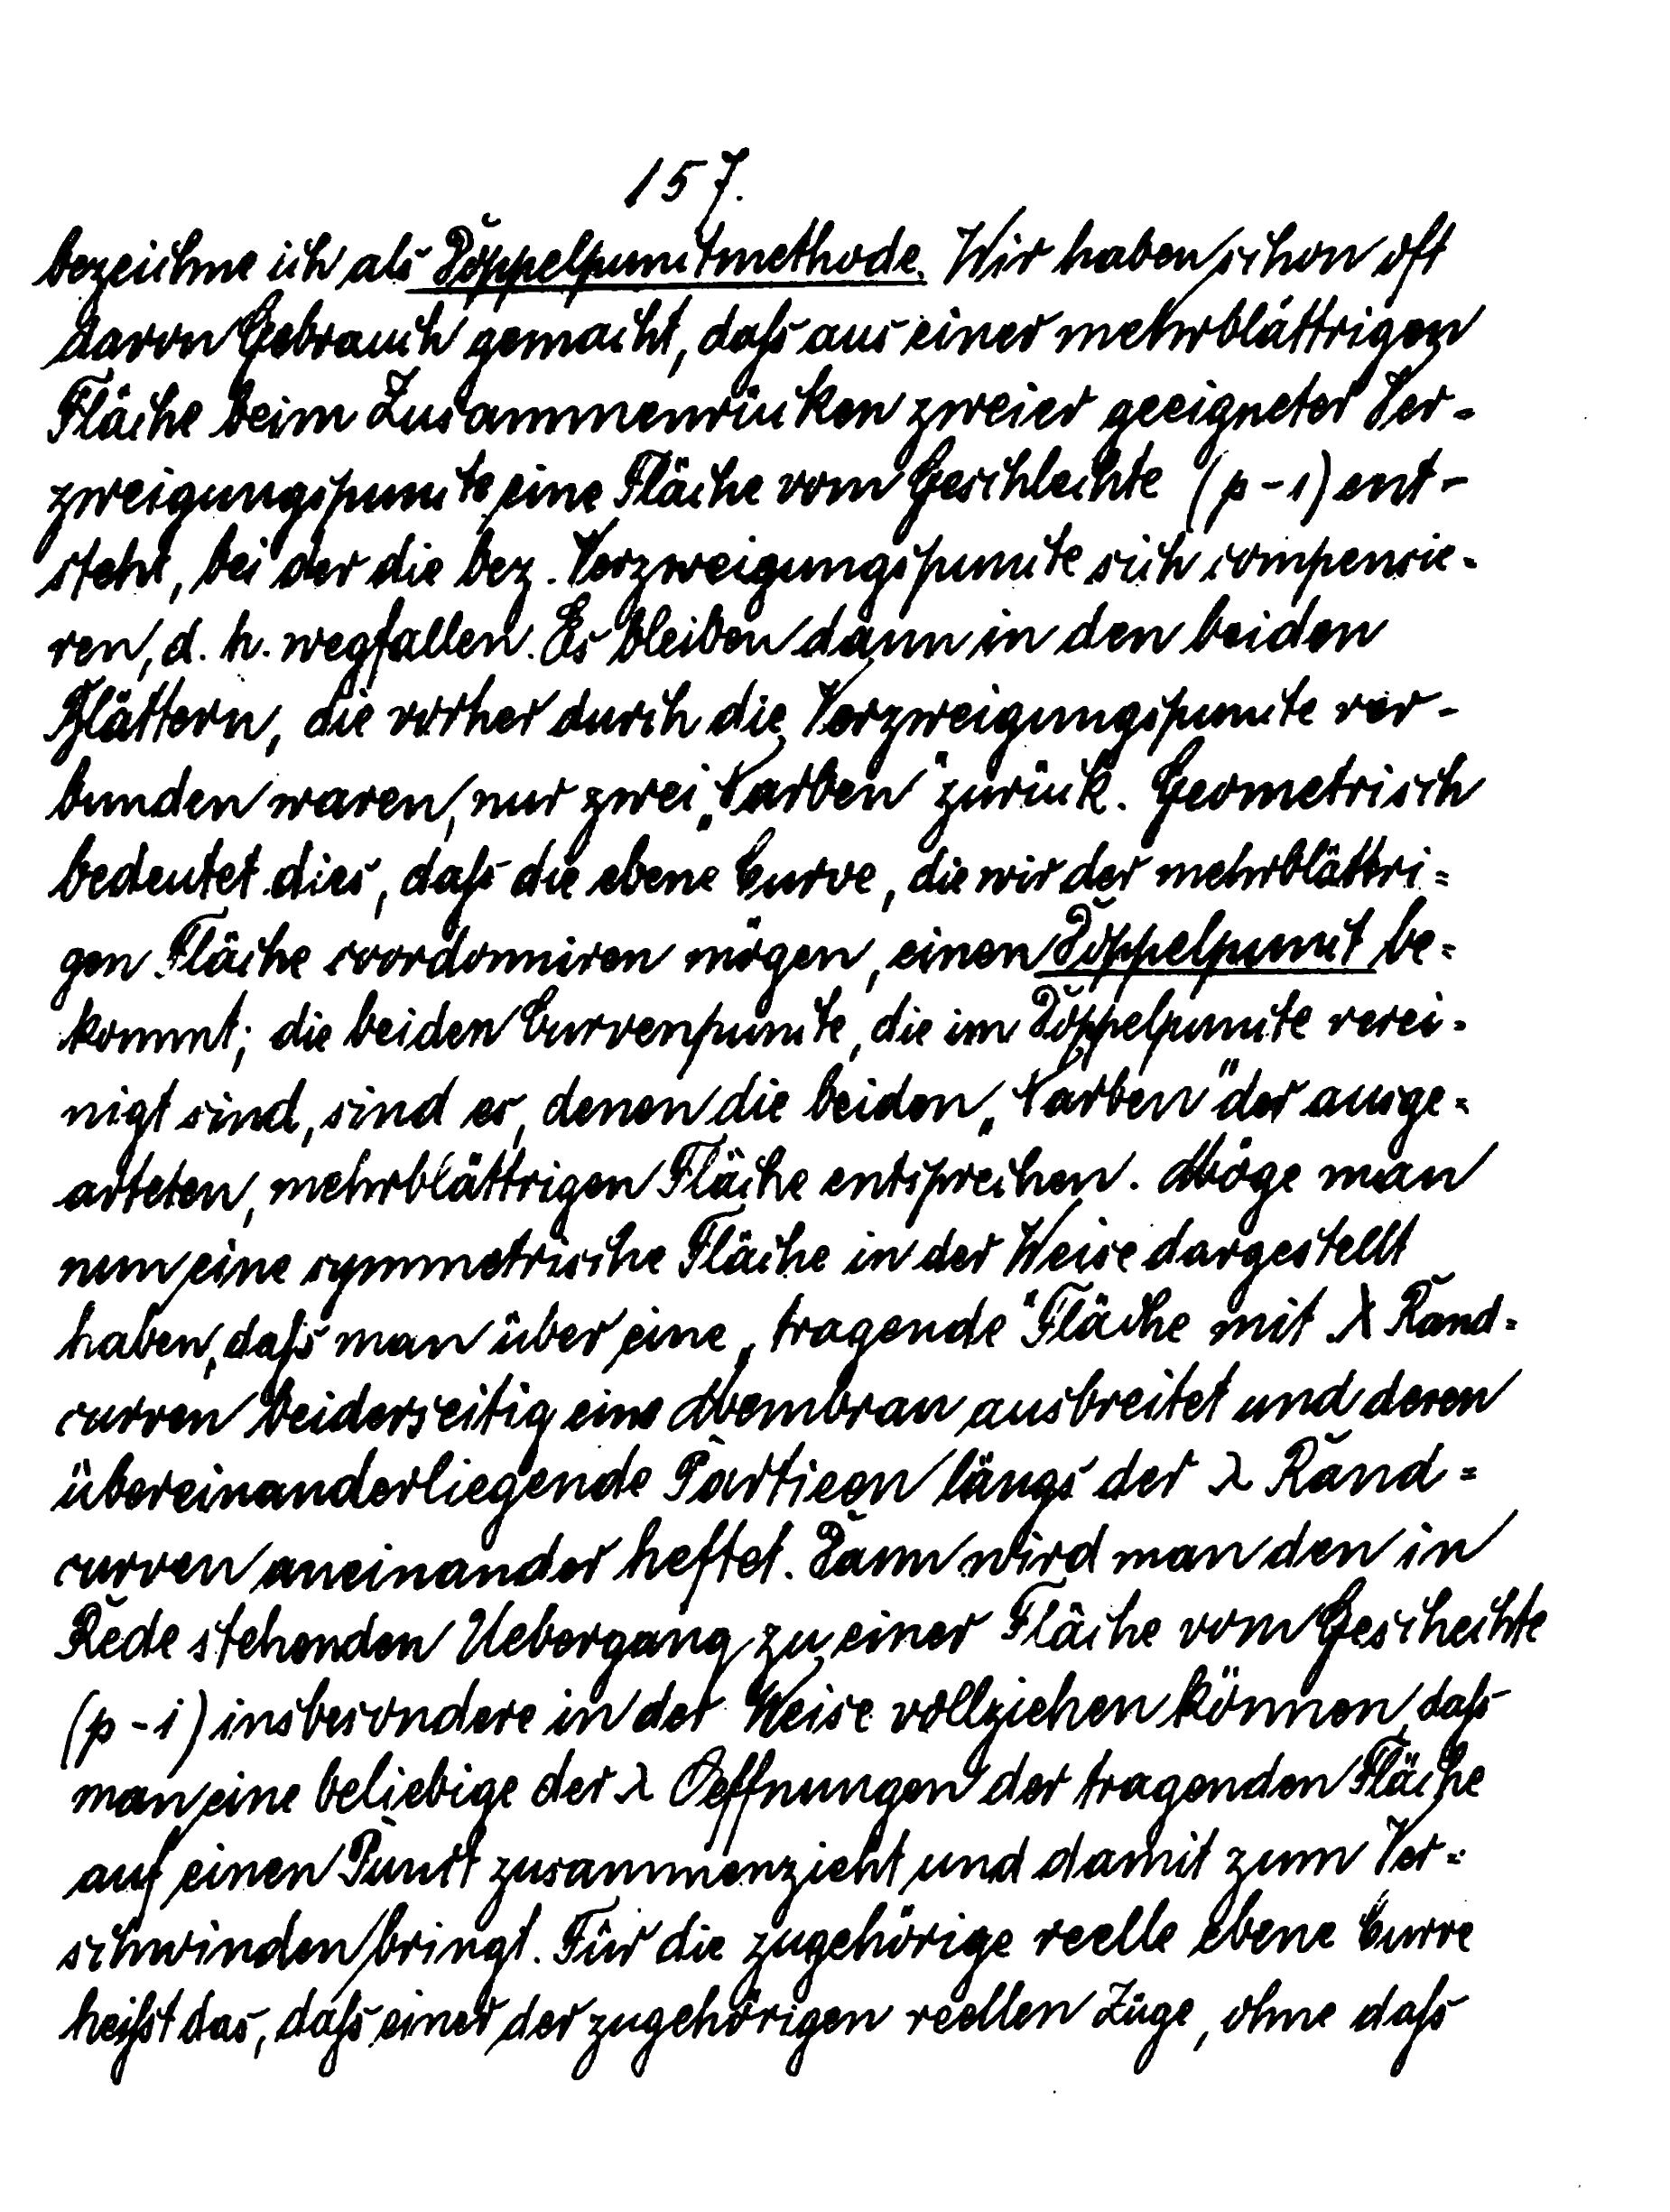 157.
bezeichne ich als Doppelpunctmethode. Wir haben schon oft
davon Gebrauch gemacht, daſs aus einer mehrblättrigen
Fläche beim Zusammenrücken zweier geeigneter Ver-
zweigungspuncte eine Fläche vom Geschlechte (p-1) ent-
steht, bei der die bez. Verzweigungspuncte sich compensie-
ren, d. h. wegfallen. Es bleiben dann in den beiden
Blättern, die vorher durch die Verzweigungspuncte ver-
bunden waren, nur zwei „Narben" zurück. Geometrisch
bedeutet dies, daſs die ebene Curve, die wir der mehrblättri-
gen Fläche coordonniren mögen, einen Doppelpunct be-
kommt; die beiden Curvenpuncte, die im Doppelpuncte verei-
nigt sind, sind es, denen die beiden „Narben" der ausge-
arteten, mehrblättrigen Fläche entsprechen. Möge man
nun eine symmetrische Fläche in der Weise dargestellt
haben, daſs man über eine „tragende" Fläche mit λ Rand-
curven beiderseitig eine Membran ausbreitet und deren
übereinanderliegende Partieen längs der λ Rand-
curven aneinander heftet. Dann wird man den in
Rede stehenden Uebergang zu einer Fläche vom Geschechte
(p-1) insbesondere in der Weise vollziehen können, daſs
man eine beliebige der λ Oeffnungen der tragenden Fläche
auf einen Punct zusammenzieht und damit zum Ver-
schwinden bringt. Für die zugehörige reelle ebene Curve
heiſst das, daſs einer der zugehörigen reellen Züge, ohne daſs